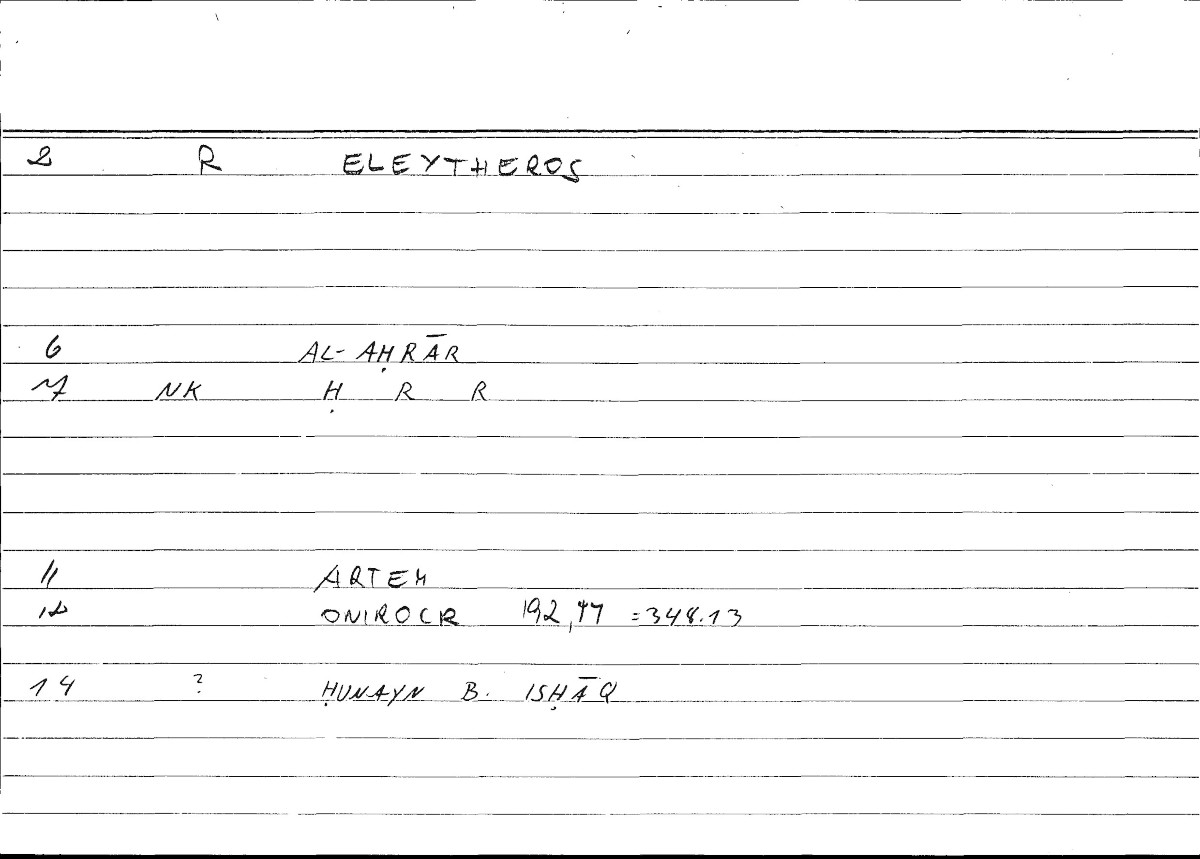 2 R ELEYTHEROS
6 AL-AḤRĀR
7 NK Ḥ R R
11 ARTEM
12 ONIROCR 192, =348.13
14 ? ḤUNAYN B. ISḤĀQ